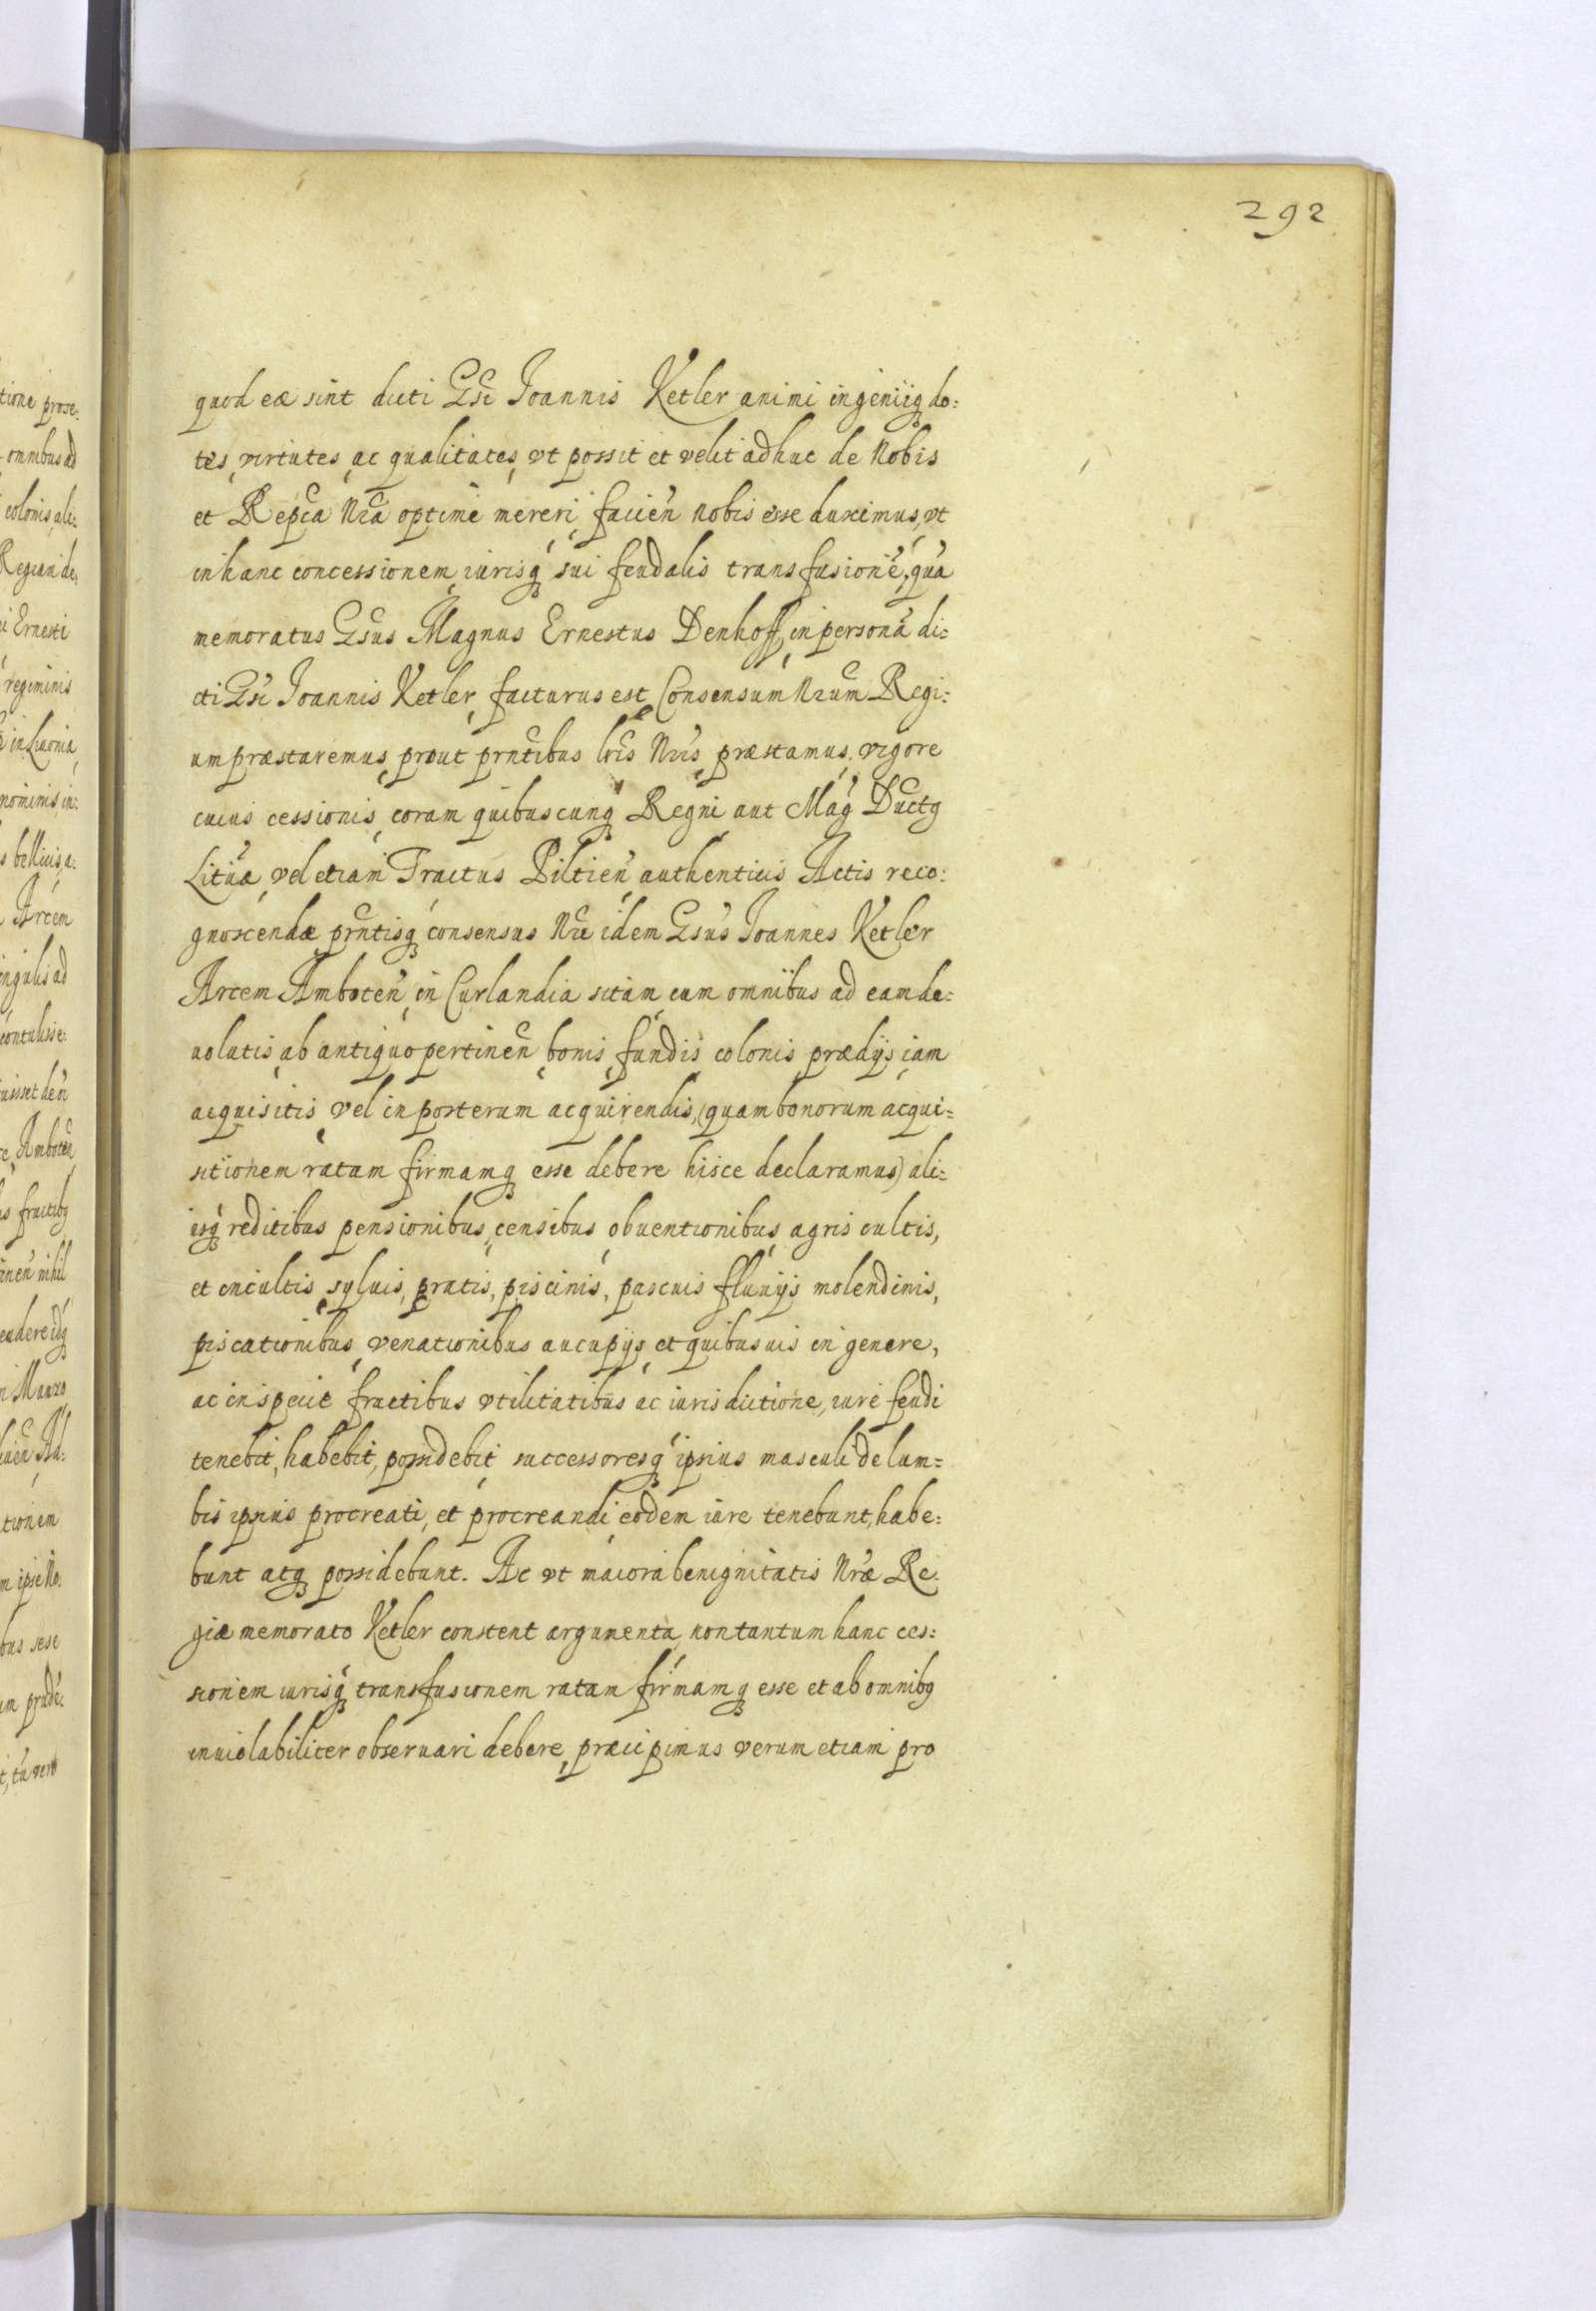 292
quod eæ sint dicti Gsi Joannis Ketler animi ingeniiq do:
tes, virtutes, ac qualitates, vt possit et velit adhuc de Nobis
et Repca Nra optime mereri, facien Nobis esse duximus, vt
in hanc concessionem, iurisq sui feudalis transfusionē, qua
memoratus Gsus Magnus Ernestus Denhoff, in personā di:
cti Gsi Joannis Ketler, facturus est, Consensum Nrum Regi:
um præstaremus, prout prntibus lris Nris, præstamus, vigore
cuius cessionis, coram quibuscunq Regni aut Mag Ductq
Lituæ, vel etiam Tractus Piltien authenticis Actis reco:
gnoscendæ, prntisq consensus Nri idem Gsus Joannes Ketler
Arcem Amboten, in Curlandia sitam, cum omnibus ad eam de:
uolutis, ab antiquo pertinen, bonis, fundis colonis, prædijs, iam
acquisitis, vel in posterum acquirendis, (quam bonorum acqui=
sitionem ratam firmamq esse debere hisce declaramus) ali=
isq reditibus pensionibus, censibus obuentionibus, agris cultis,
et incultis, syluis, pratis, piscinis, pascuis fluuijs molendinis,
piscationibus, venationibus aucupijs, et quibusuis in genere,
ac in specie fructibus vtilitatibus ac iurisdictione, iure feudi
tenebit, habebit, possidebit, successoresq ipsius masculi de lum=
bis ipsius procreati, et procreandi, eodem iure tenebunt, habe:
bunt atq possidebunt. Ac vt maiora benignitatis Nræ Re:
giæ memorato Ketler constent argumenta, non tantum hanc ces:
sionem iurisq transfusionem ratam firmamq esse et ab omnibq
inuiolabiliter obseruari debere, præcipimus verum etiam pro